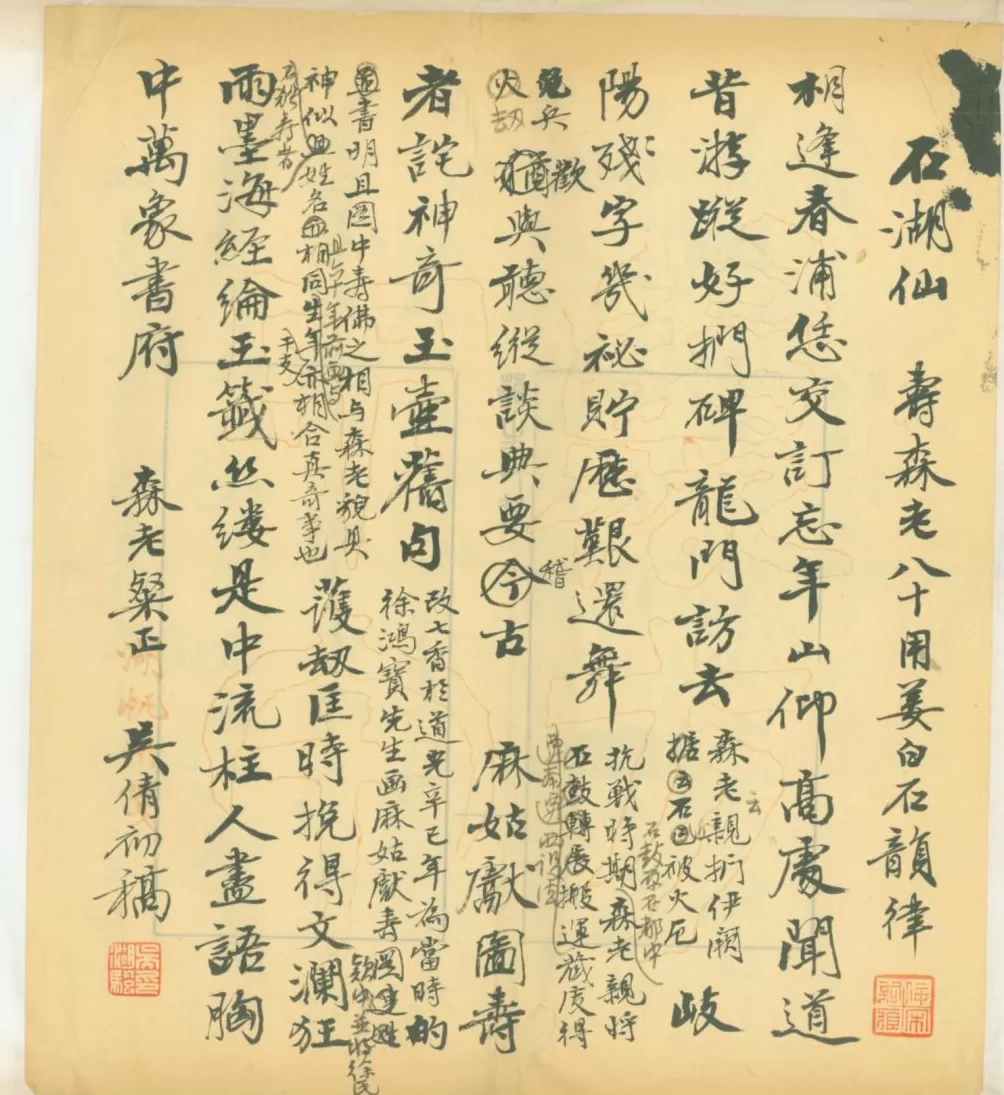 石湖仙　壽森老八十用姜白石韻律
相逢春浦恁交訂忘年山仰高處聞道
昔游蹤好捫碑龍門訪去
森老親捫伊闕
云
据云石已被火厄
石鼓原在都中
岐
陽殘字幾祕貯歷艱還舞
抗戰時期森老親將
石鼓轉展搬運藏庋得
兵
火劫
歡
與聽縱談典要今古
稽
麻姑獻圖壽
改七香於道光辛巳年為當時的
徐鴻寶先生画麻姑獻壽圖
者詫神奇玉壺舊句
書明且圖中壽佛之相与森老貌具
神似且姓名相同生年亦相合真奇事也
干支
護劫匡時挽得文瀾狂
雨墨海經綸玉籤丝缕是中流柱人盡語胸
中萬象書府　森老粲正　吳倩初稿